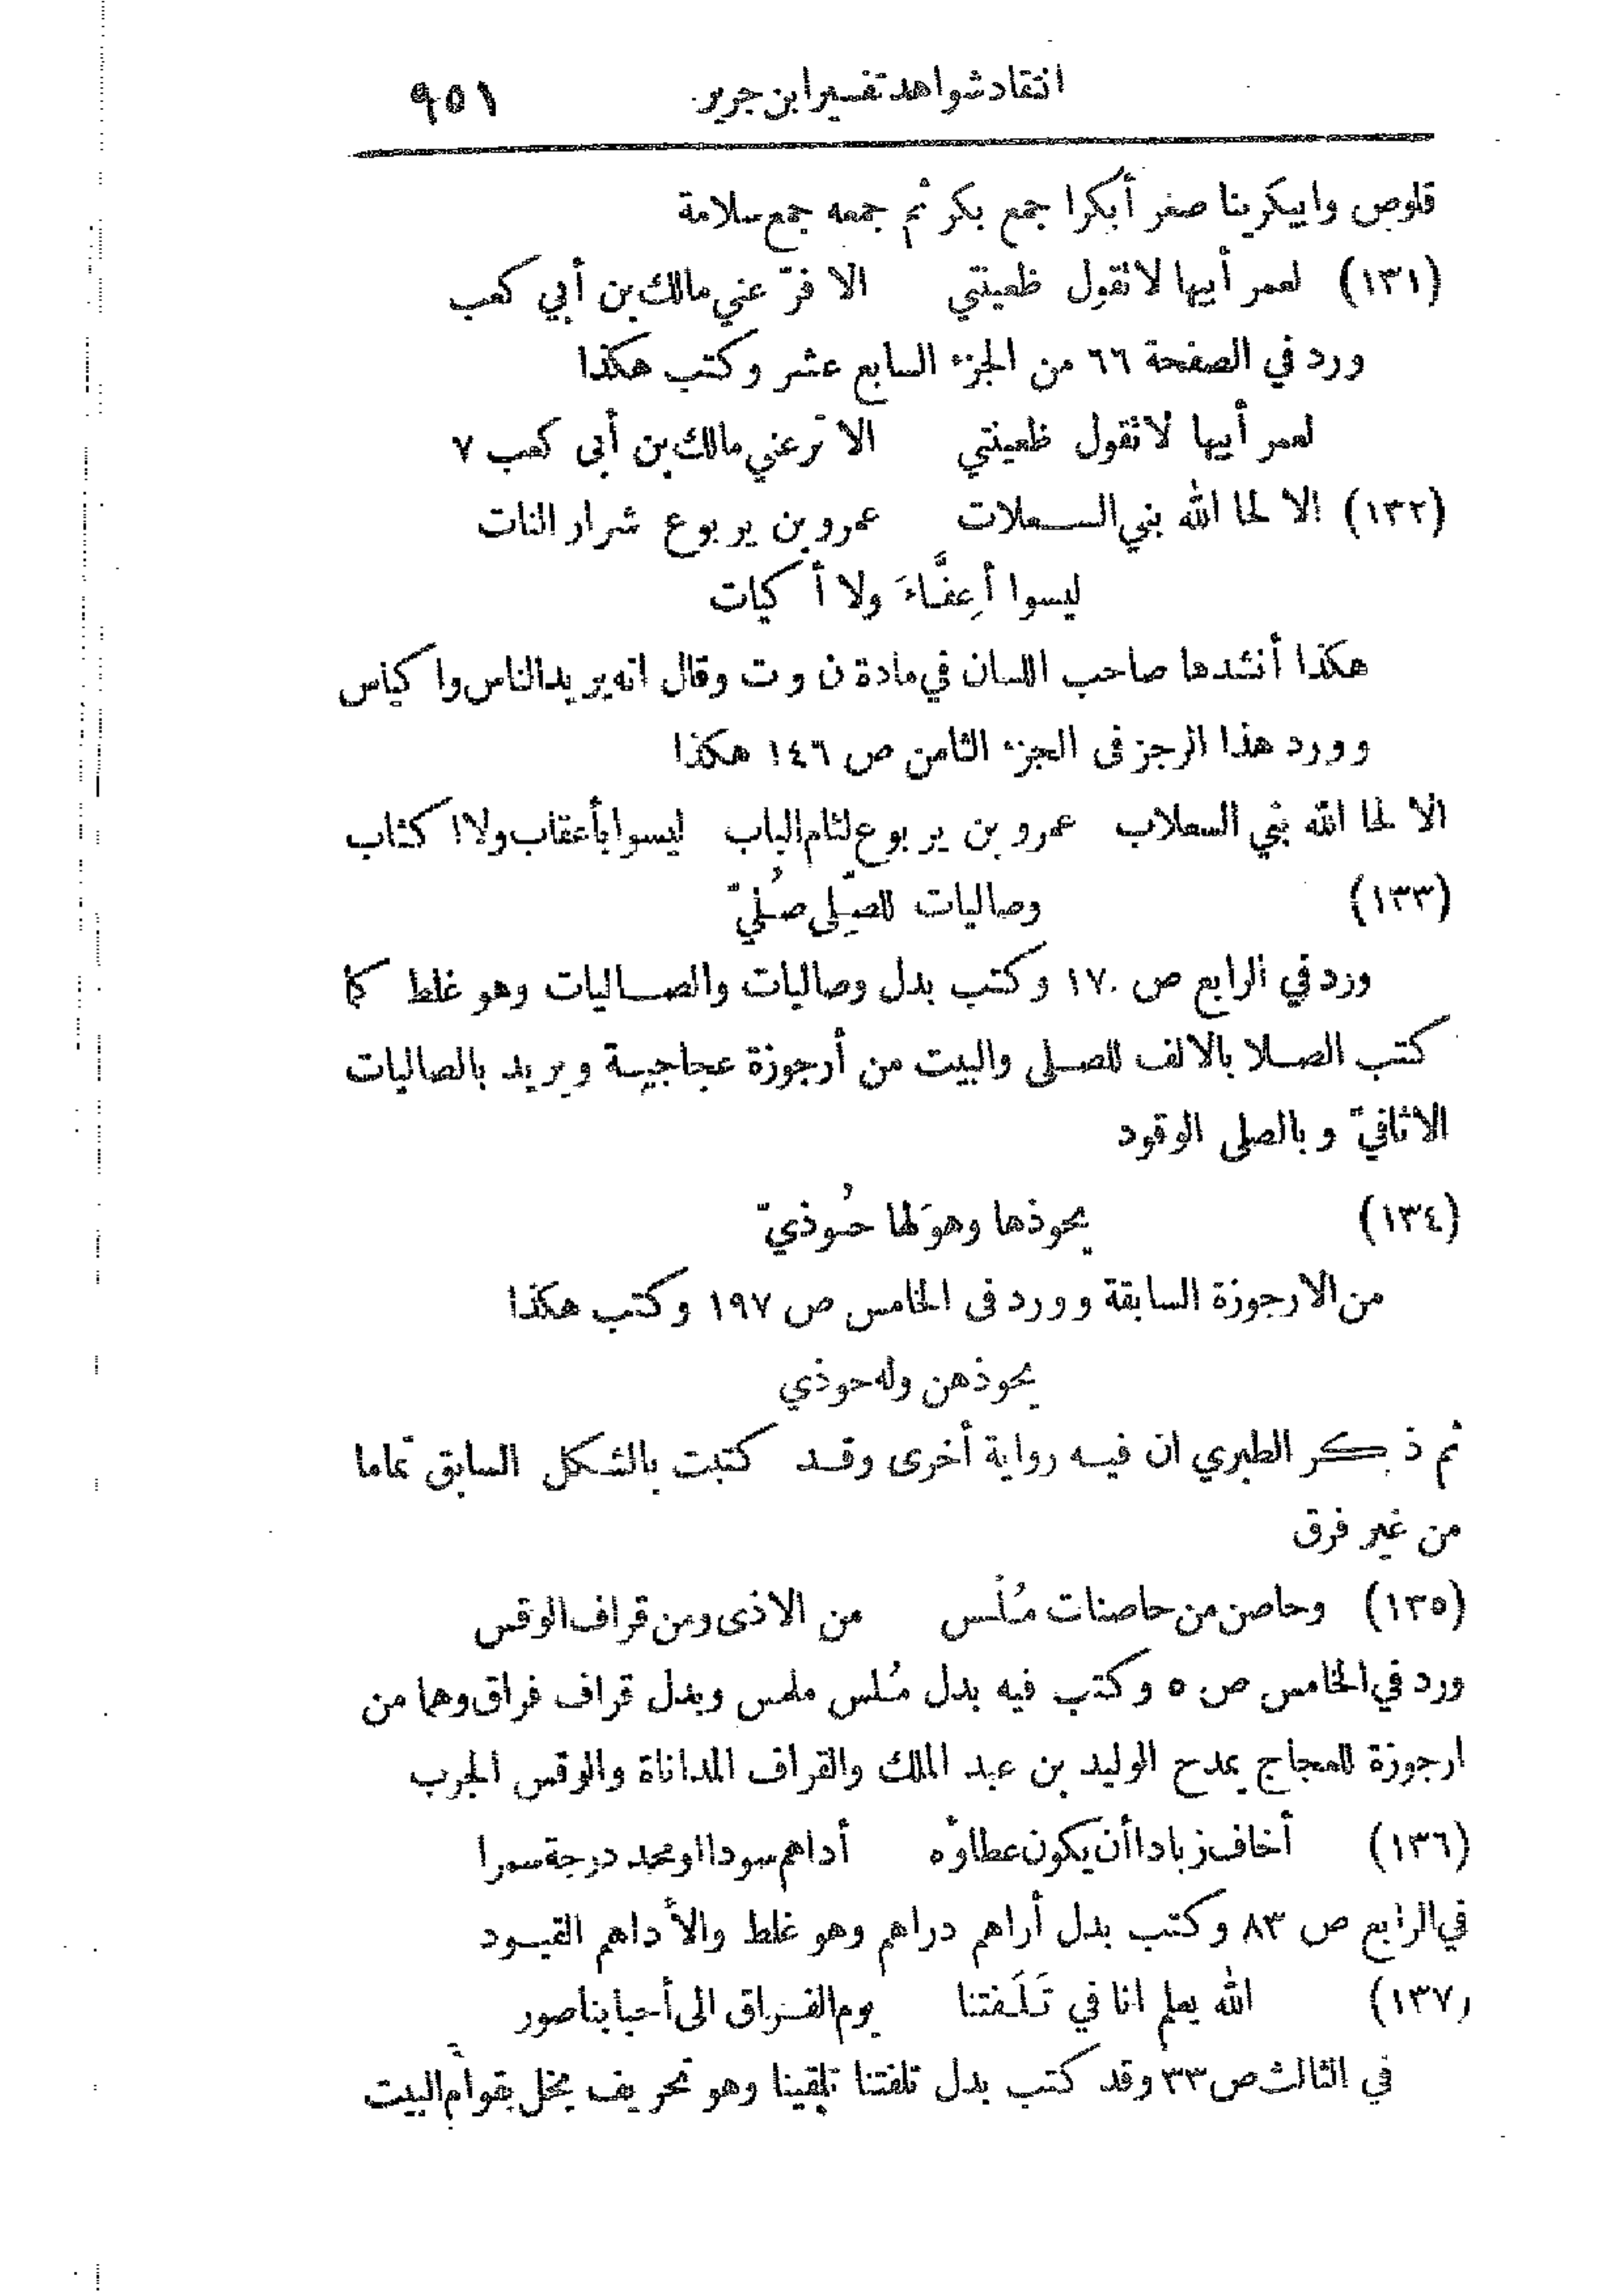 انتقاد شواهد تفسير ابن جرير ٩٥١
قلوص وابيكرينا صغر أبكرا جمع بكر ثم جمعه جمع سلامة
(١٣١) لعمر أبيها لا تقول ظعينتي الا فرّ عني مالك بن أبي كعب
ورد في الصفحة ٦٦ من الجزء السابع عشر وكتب هكذا
لعمر أبيها لا تقول ظعينتي الا ترعني مالك بن أبى كعب ٧
(١٣٢) الا لحا الله بني السعلات عمرو بن يربوع شرار النات
ليسوا أعِفَّاءَ ولا أكيات
هكذا أنشدها صاحب اللسان في مادة ن و ت وقال انه يريد الناس واكياس
وورد هذا الرجز فى الجزء الثامن ص ١٤٦ هكذا
الا لحا الله بني السعلاب عمرو بن يربوع لئام الباب ليسوا بأعقاب ولا اكثاب
(١٣٣) وصاليات للصِّلى صُليّ
ورد في الرابع ص ١٧٠ وكتب بدل وصاليات والصاليات وهو غلط كما
كتب الصلا بالالف للصلى والبيت من أرجوزة عجاجية ويريد بالصاليات
الاثافيّ وبالصلى الوقود
(١٣٤) يحوذها وهوَ لها حُوذيّ
من الارجوزة السابقة وورد فى الخامس ص ١٩٧ وكتب هكذا
يحوذهن وله حوذي
ثم ذكر الطبري ان فيه رواية أخرى وقد كتبت بالشكل السابق تماما
من غير فرق
(١٣٥) وحاصن من حاصنات مُلْس من الاذى ومن قراف الوقس
ورد في الخامس ص ٥ وكتب فيه بدل مُلس ملمس وبدل قراف فراق وهما من
ارجوزة للعجاج يمدح الوليد بن عبد الملك والقراف المداناة والوقس الجرب
(١٣٦) أخاف زبادا أن يكون عطاؤه أداهم سودا او محدرجة سمرا
في الرابع ص ٨٣ وكتب بدل أراهم دراهم وهو غلط والأداهم القيود
(١٣٧) الله يعلم انا في تَلَفتنا يوم الفراق الى أحبابنا صور
في الثالث ص ٣٣ وقد كتب بدل تلفتنا تلقينا وهو تحريف يخل بقوام البيت